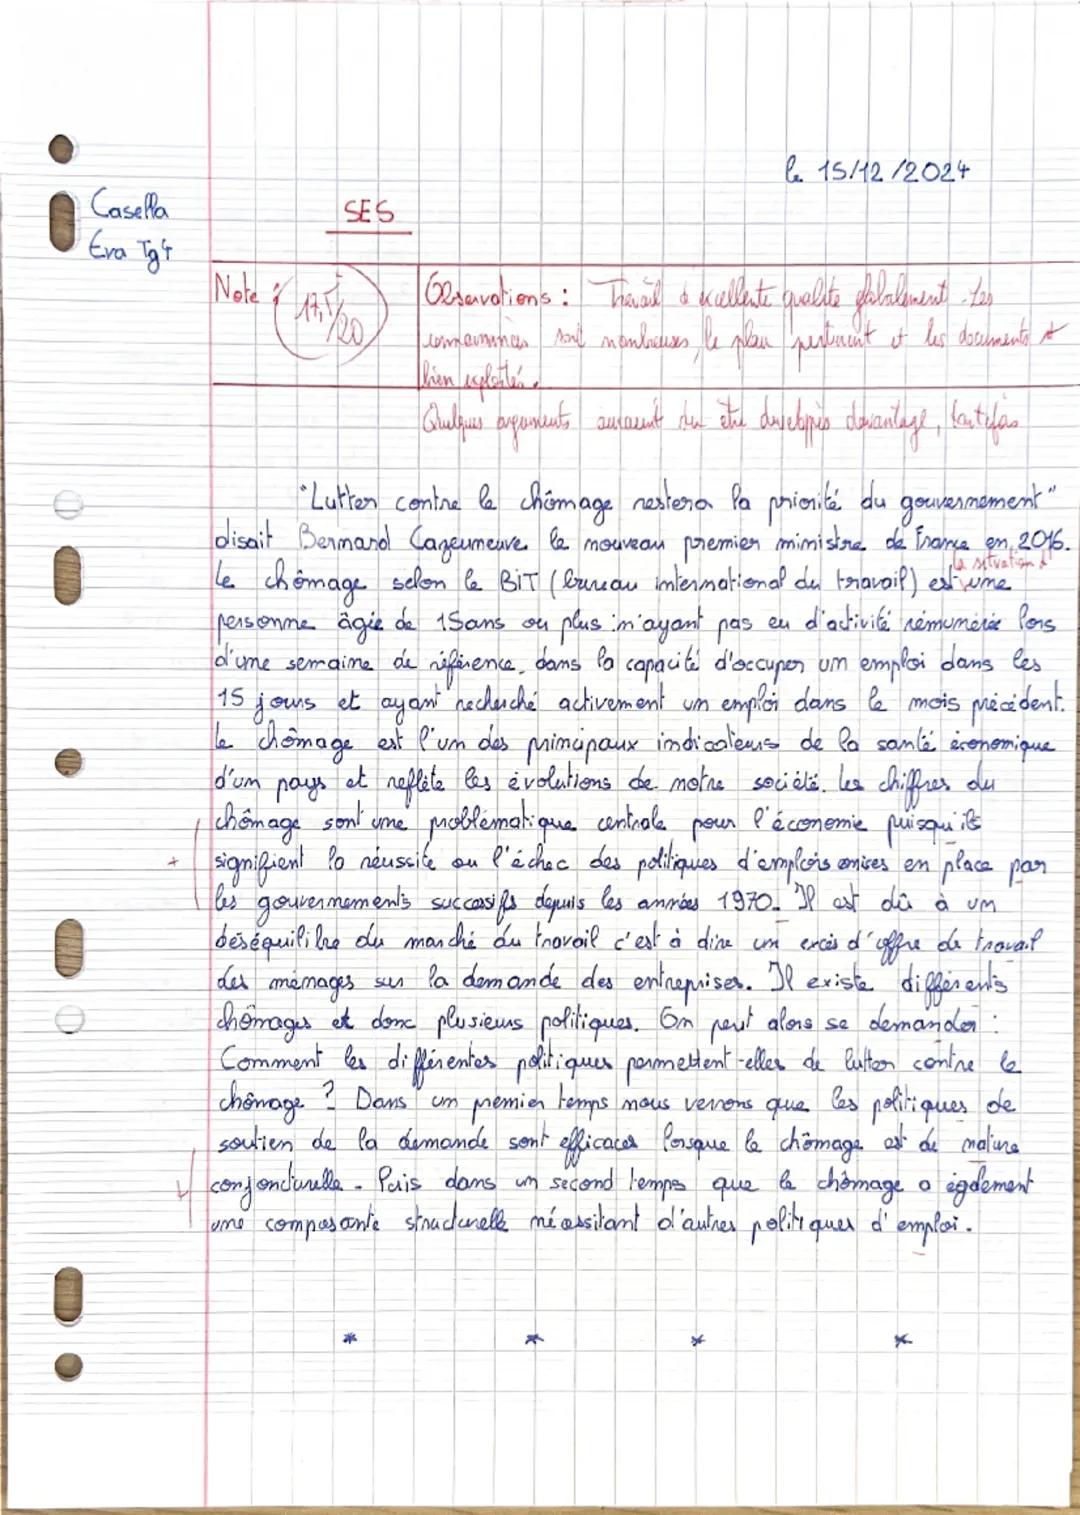 le 15/12/2024
Casella
Eva Tg4
SES
Note : 17,5/20
Observations : Travail d'excellente qualité globalement. Les
connaissances sont nombreuses, le plan pertinent et les documents
bien exploités.
Quelques arguments auraient du être développés davantage, toutefois
"Lutter contre le chômage restera la priorité du gouvernement"
disait Bernard Cazeuneuve le nouveau premier ministre de France en 2016.
la situation d'
Le chômage selon le BIT (bureau international du travail) est une
personne âgée de 15ans ou plus n'ayant pas eu d'activité rémunérée lors
d'une semaine de référence, dans la capacité d'occuper un emploi dans les
15 jours et ayant recherché activement un emploi dans le mois précédent.
Le chômage est l'un des principaux indicateurs de la santé économique
d'un pays et reflète les évolutions de notre société. Les chiffres du
chômage sont une problématique centrale pour l'économie puisqu'ils
+ signifient la réussite ou l'échec des politiques d'emplois mises en place par
les gouvernements successifs depuis les années 1970. Il est dû à un
déséquilibre du marché du travail c'est à dire un excès d'offre de travail
des ménages sur la demande des entreprises. Il existe différents
chômages et donc plusieurs politiques. On peut alors se demander :
Comment les différentes politiques permettent-elles de lutter contre le
chômage ? Dans un premier temps nous verrons que les politiques de
soutien de la demande sont efficaces lorsque le chômage est de nature
conjoncturelle. Puis dans un second temps que le chômage a également
une composante structurelle nécessitant d'autres politiques d'emploi.
* * * *